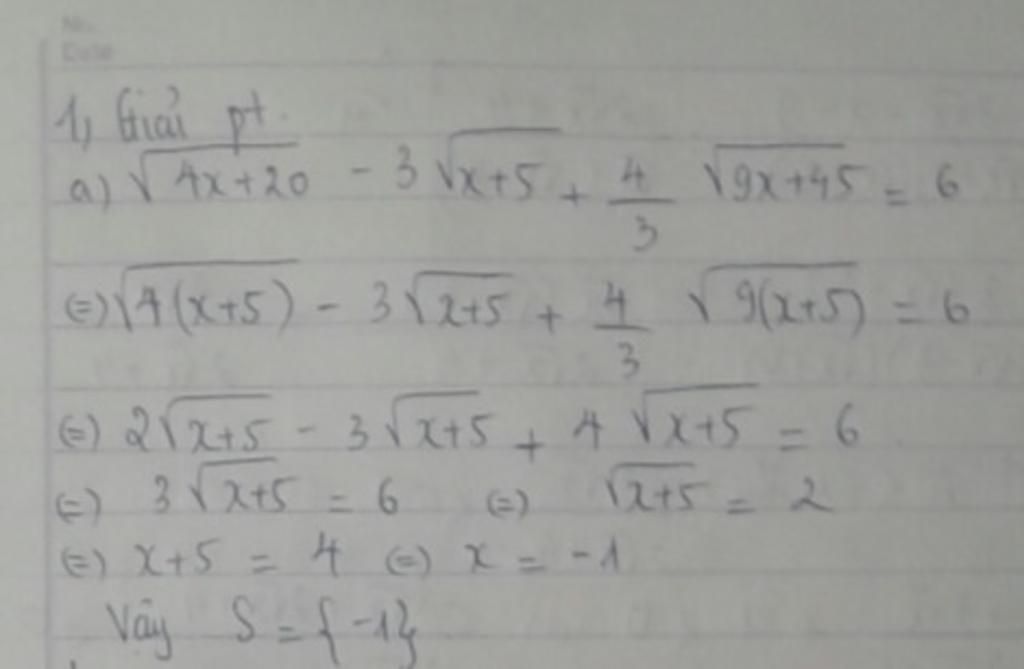 No.
Date
1, Giải pt.
a) √(4x+20) - 3√(x+5) + 4/3 √(9x+45) = 6
(=) √(4(x+5)) - 3√(x+5) + 4/3 √(9(x+5)) = 6
(=) 2√(x+5) - 3√(x+5) + 4√(x+5) = 6
(=) 3√(x+5) = 6 (=) √(x+5) = 2
(=) x+5 = 4 (=) x = -1
Vậy S = {-1}